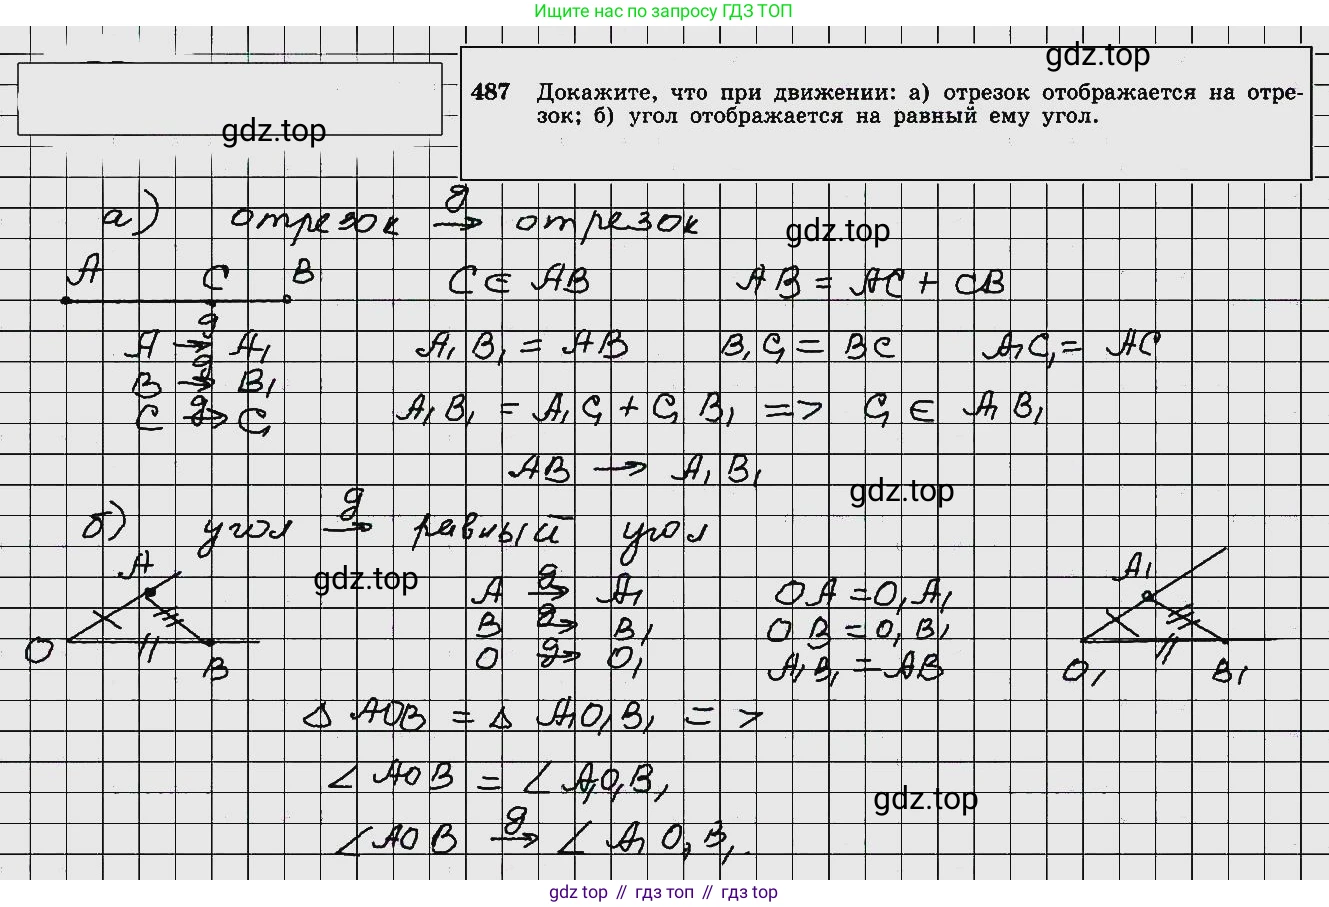 Ищите нас по запросу ГДЗ ТОП
gdz.top
487 Докажите, что при движении: а) отрезок отображается на отре-
зок; б) угол отображается на равный ему угол.
gdz.top
а) отрезок g→ отрезок
gdz.top
A C B
C ∈ AB AB = AC + CB
A g→ A₁ A₁B₁ = AB B₁C₁ = BC A₁C₁ = AC
B g→ B₁
C g→ C₁ A₁B₁ = A₁C₁ + C₁B₁ => C₁ ∈ A₁B₁
AB → A₁B₁
gdz.top
б) угол g→ равный угол
gdz.top
A O B
A g→ A₁ OA = O₁A₁
B g→ B₁ OB = O₁B₁
O g→ O₁ A₁B₁ = AB
A₁ O₁ B₁
△ AOB = △ A₁O₁B₁ =>
∠AOB = ∠A₁O₁B₁
gdz.top
∠AOB g→ ∠A₁O₁B₁.
gdz top // гдз топ // gdz top